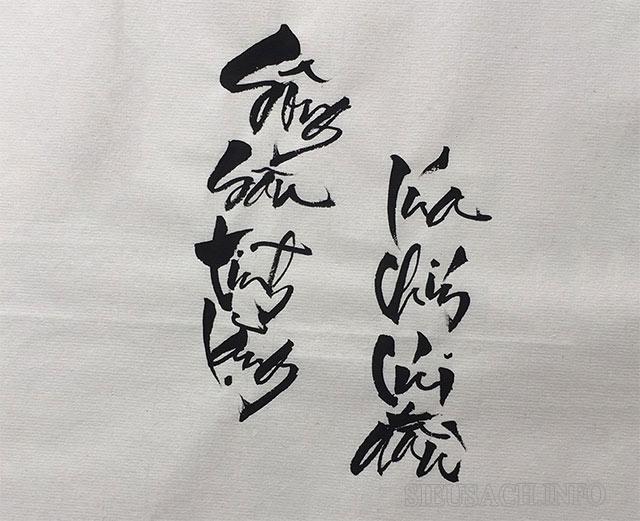 Sông
sâu
tĩnh
lặng
lúa
chín
cúi
đầu
SIEUSACH.INFO